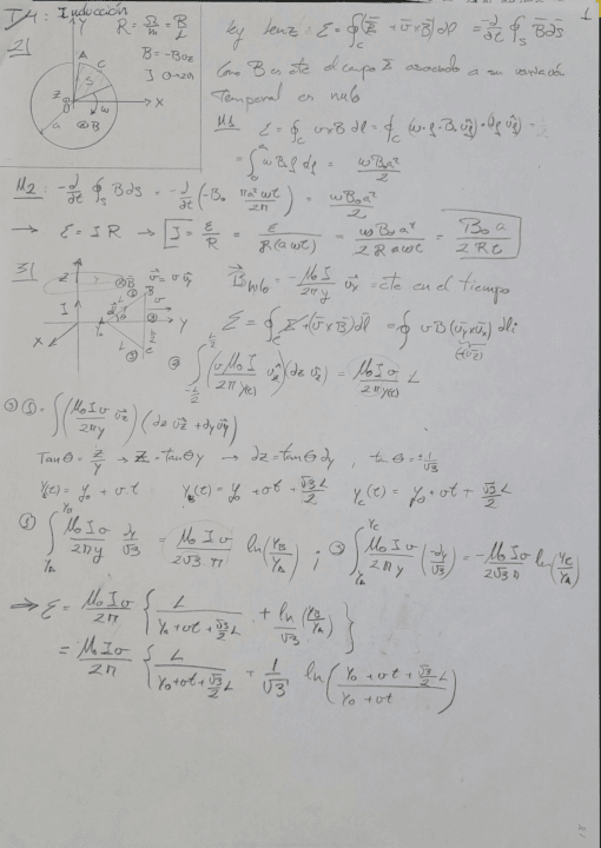 T4: Inducción
1
2)
R = Ω/m = B/L
B = -B₀z
Y
A
C
S
Z
O
X
ω
a
⊗B
Ley Lenz: ε = ∮_C (Σ̄ + v̄×B̄) dl = -d/dt ∮_S B̄ ds̄
Como B es cte el campo Σ asociado a su variación
temporal es nulo
M1 ε = ∮_C v×B dl = ∮_C (ω·ρ·B₀ u_ρ)·dρ u_ρ =
= ∫₀^a ωB₀ρ dρ = ωB₀a²/2
M2: -d/dt ∮_S B ds = -d/dt (-B₀ πa²ωt/2π) = ωB₀a²/2
→ ε = I R → I = ε/R = ε/R(aωt) = ωB₀a²/2Raωt = B₀a/2Rt
3)
Z
⊗B̄
v̄ = v u_y
I
L
B
v
X
Y₀
Y
L
C
B̄_hilo = -μ₀I/2πy u_x = cte en el tiempo
ε = ∮_C Σ + (v̄×B̄) dl̄ = ∮ vB (u_y×u_x) dl̄
(-u_z)
② ∫_{-L/2}^{L/2} (vμ₀I/2πy(t) u_z)(dz u_z) = μ₀Iv/2πy(t) L
③ ① = ∫ (μ₀Iv/2πy u_z)(dz u_z + dy u_y)
Tanθ = z/y → z = tanθ y → dz = tanθ dy, tanθ = ±1/√3
Y(t) = y₀ + v.t Y_B(t) = y₀ + vt + √3/2 L Y_C(t) = y₀ + vt + √3/2 L
① ∫_{Y_A}^{Y_B} μ₀Iv/2πy dy/√3 = μ₀Iv/2√3.π ln(Y_B/Y_A) ; ③ ∫_{Y_A}^{Y_C} μ₀Iv/2πy (-dy/√3) = -μ₀Iv/2√3π ln(Y_C/Y_A)
⇒ ε = μ₀Iv/2π { L/(Y₀+vt+√3/2 L) + ln/√3 (Y_B/Y_A) }
= μ₀Iv/2π { L/(Y₀+vt+√3/2 L) + 1/√3 ln((Y₀+vt+√3/2 L)/(Y₀+vt))